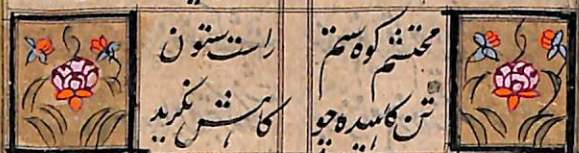 محتشم کوه ستم راست ستون
تن کاهیده چو کاهش نگرید